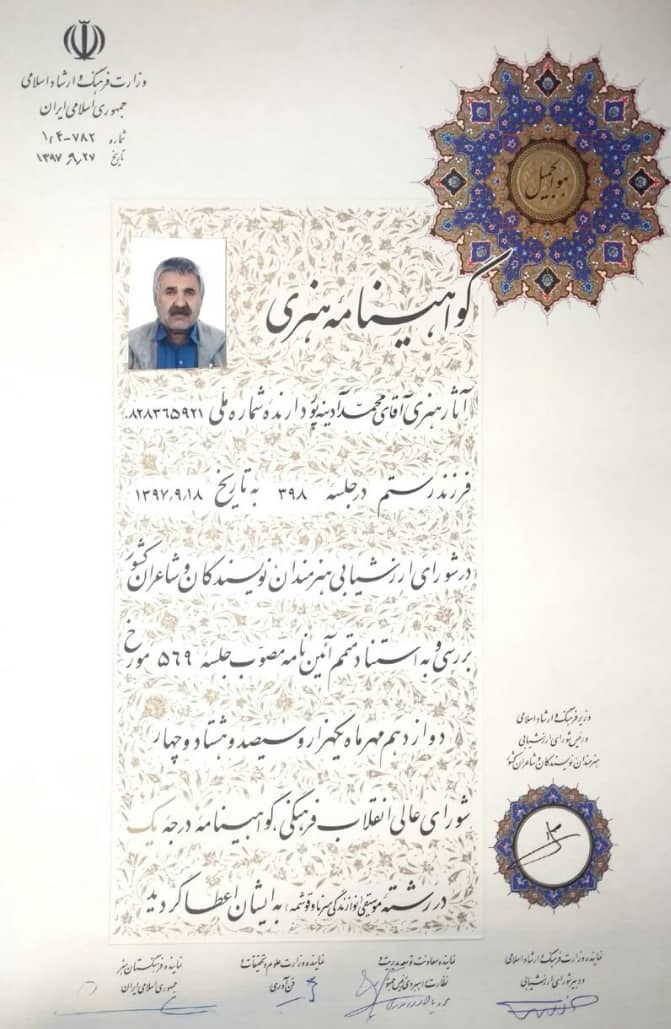 وزارت فرهنگ و ارشاد اسلامی
جمهوری اسلامی ایران
شماره ۱۰۴-۷۸۲
تاریخ ۱۳۹۷/۹/۲۷
هو الجمیل
گواهینامه هنری
آثار هنری آقای محمد آدینه پور دارنده شماره ملی ۰۸۲۸۳۶۵۹۲۱
فرزند رستم در جلسه ۳۹۸ به تاریخ ۱۳۹۷.۹.۱۸
در شورای ارزشیابی هنرمندان نویسندگان و شاعران کشور
بررسی و به استناد متمم آئین نامه مصوب جلسه ۵۶۹ مورخ
دوازدهم مهرماه یکهزار و سیصد و هشتاد و چهار
شورای عالی انقلاب فرهنگی، گواهینامه درجه یک
در رشته موسیقی (نوازندگی سرنا و قوشمه) به ایشان اعطا گردید
وزیر فرهنگ و ارشاد اسلامی
و رئیس شورای ارزشیابی
هنرمندان نویسندگان و شاعران کشور
نماینده وزارت فرهنگ و ارشاد اسلامی
و دبیر شورای ارزشیابی
نماینده معاونت توسعه مدیریت و
نظارت راهبردی رئیس جمهور
نماینده وزارت علوم، تحقیقات و
فن آوری
نماینده فرهنگستان هنر
جمهوری اسلامی ایران